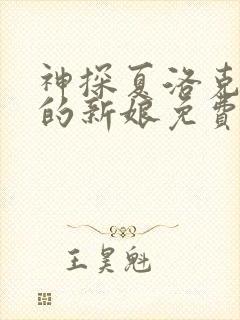 神探夏洛克
的新娘免费
王昊魁